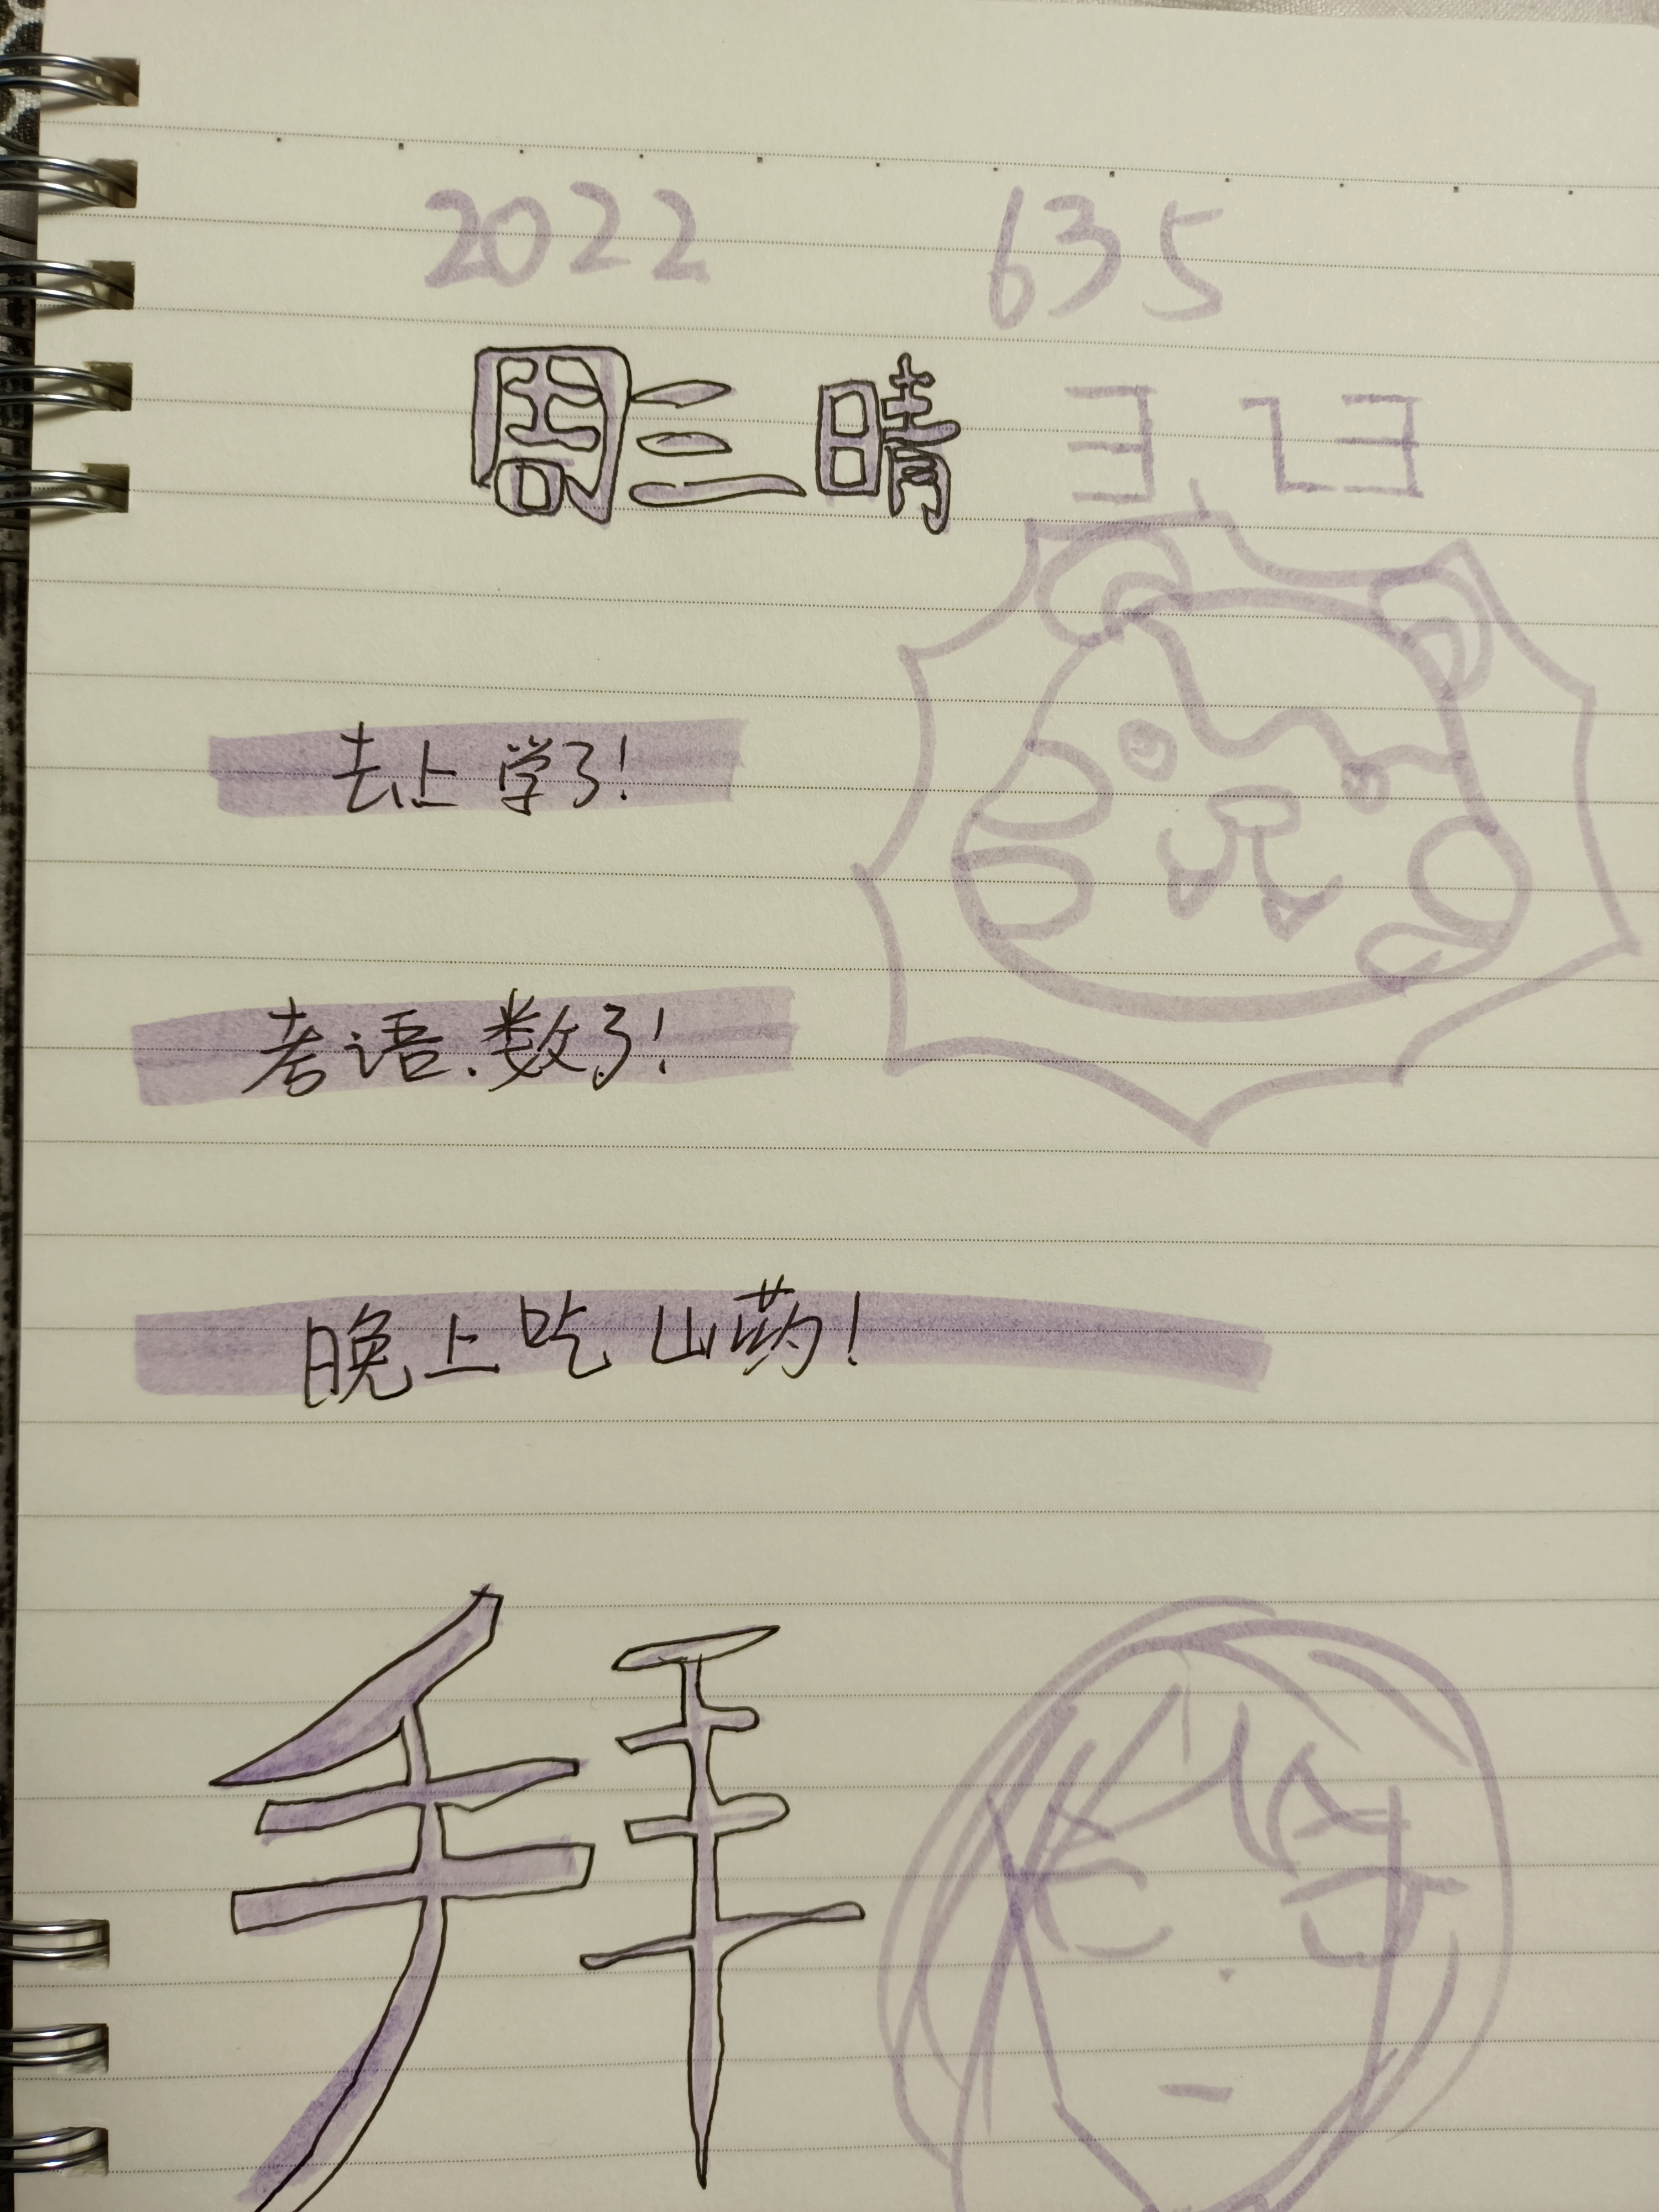 2022 635
周三晴 3,23
去上学了!
考语.数了!
晚上吃山药!
拜